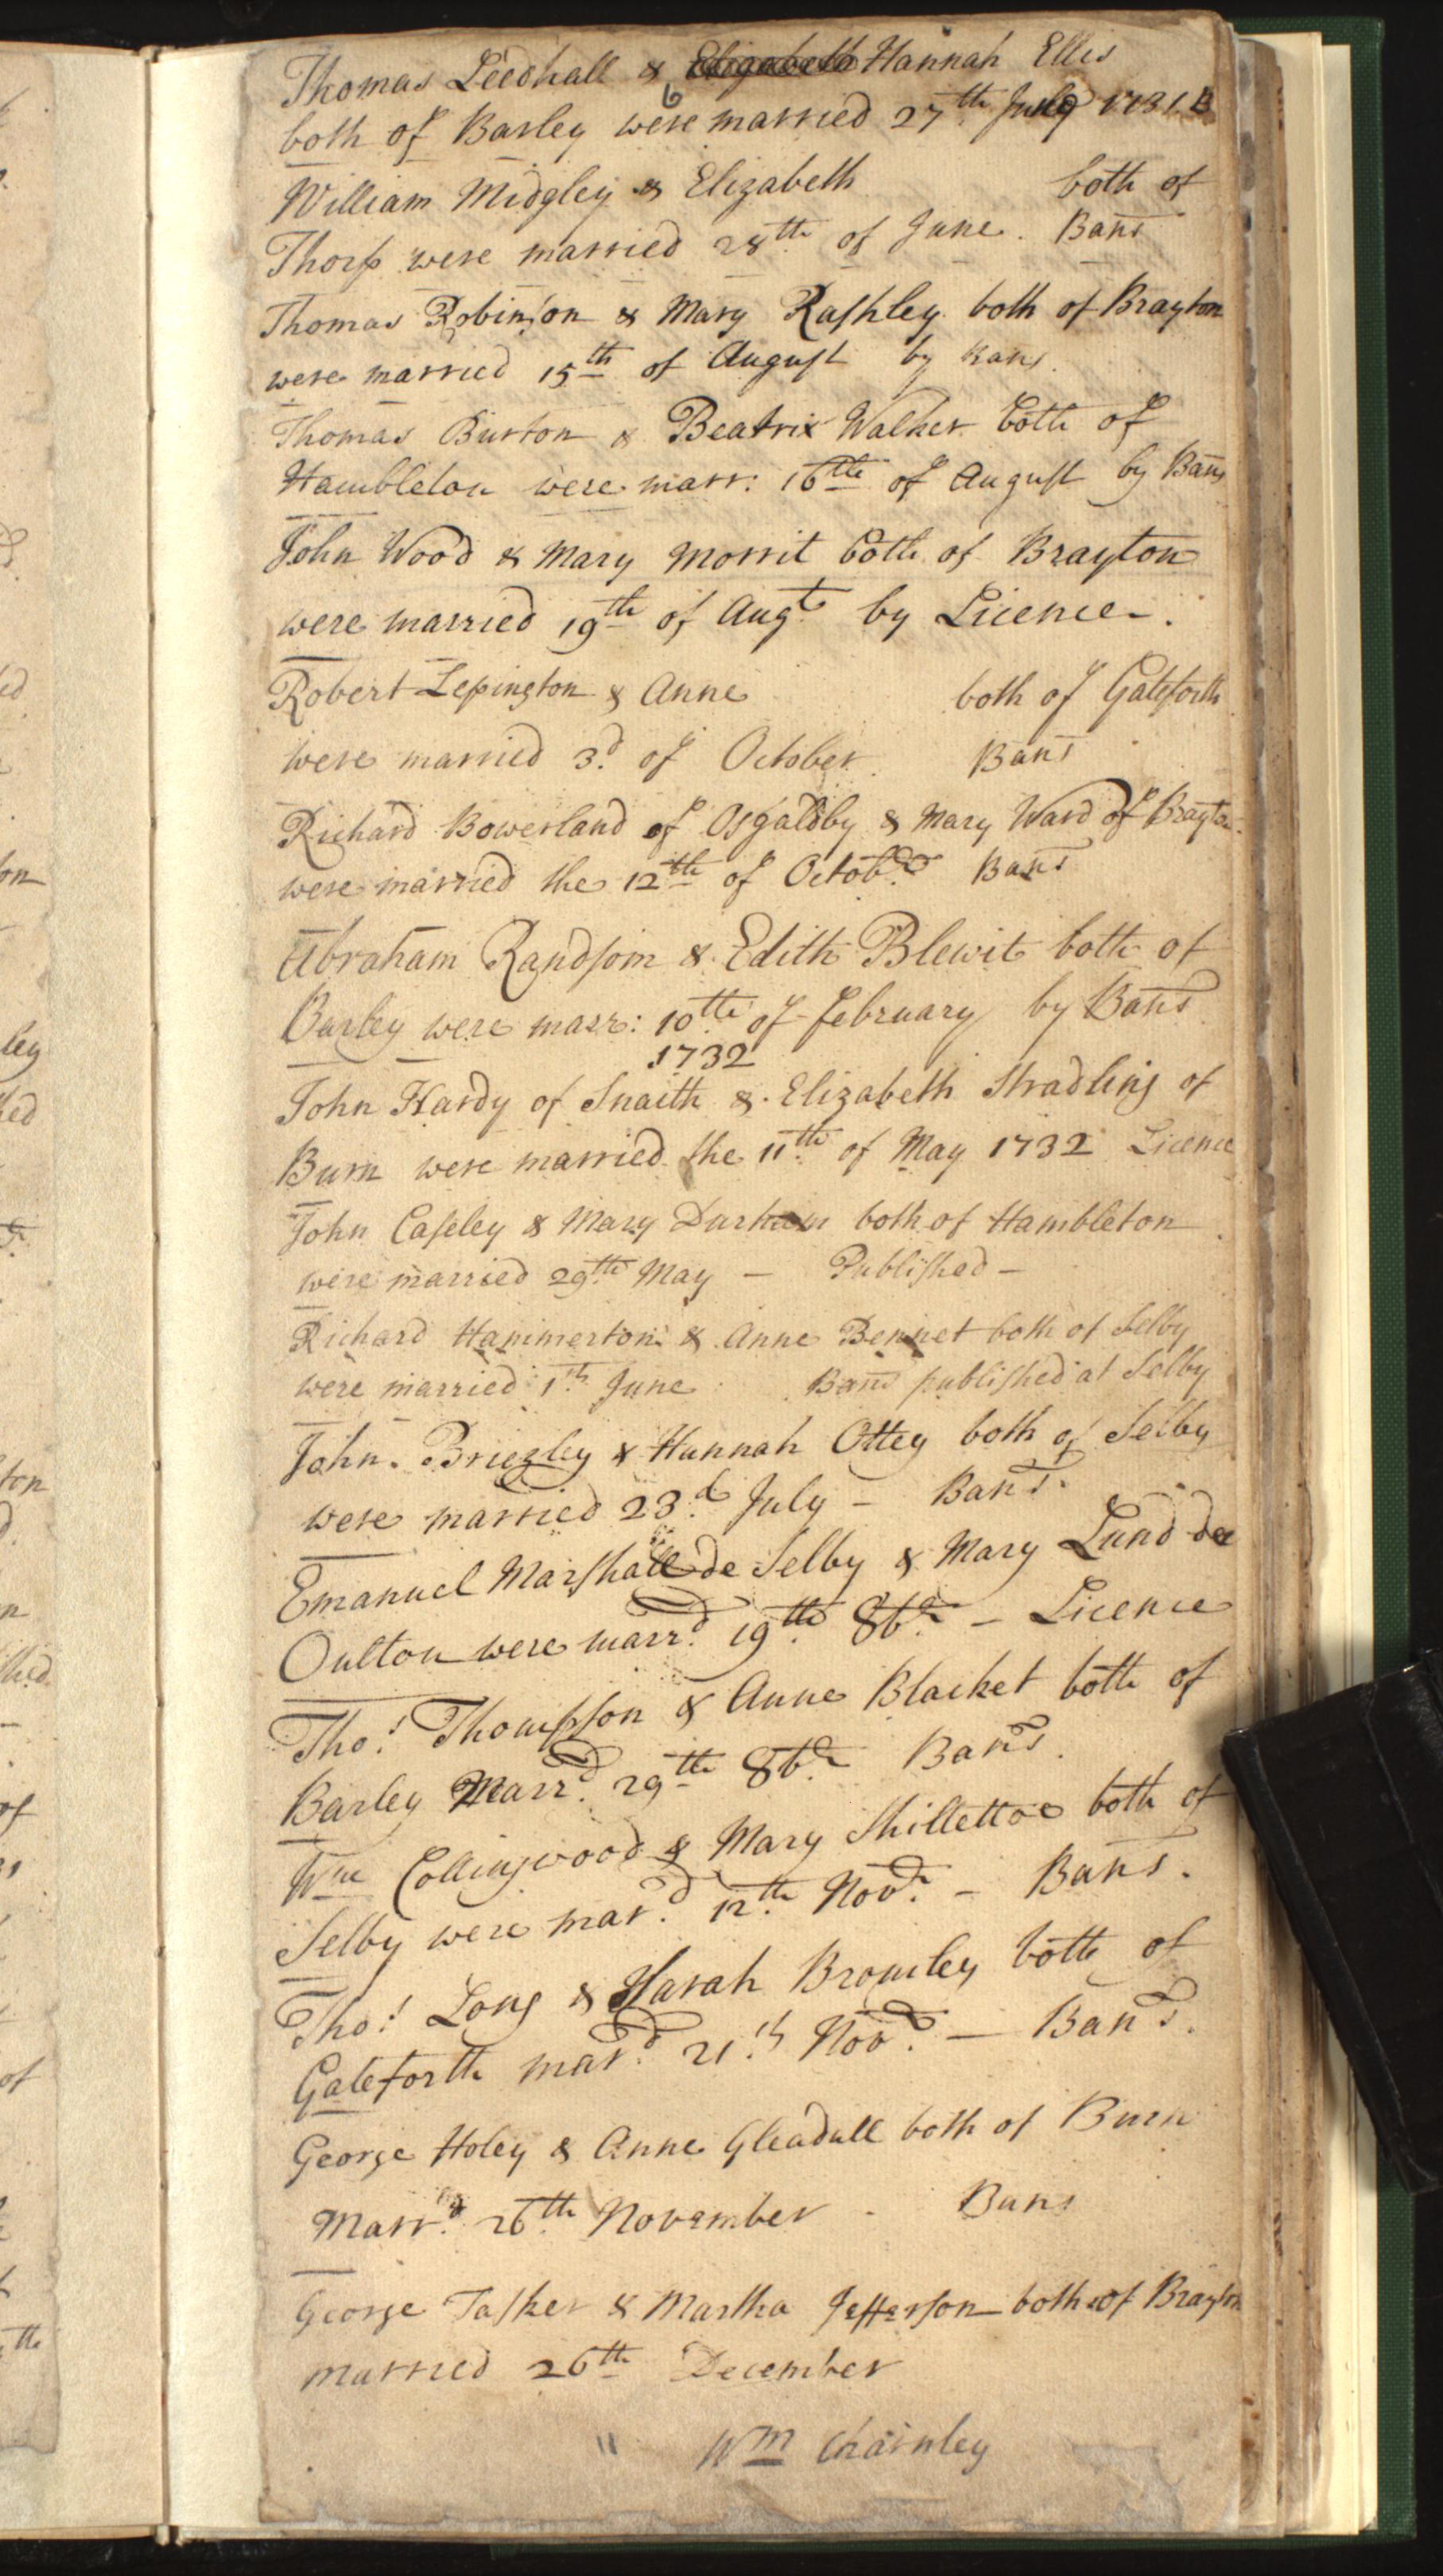 Thomas Leedhall & Elizabeth Hannah Ellis
both of Barley were married 27th July 1731. B
William Midgley & Elizabeth both of
Thorp were married 28th of June. Bans
Thomas Robinson & Mary Rashley both of Brayton
were married 15th of August by Bans.
Thomas Burton & Beatrix Walker both of
Hambleton were marr: 16th of August by Bans
John Wood & Mary Morrit both of Brayton
were married 19th of Augt by Licence.
Robert Lepington & Anne both of Gateforth
were married 3d of October. Bans
Richard Bowerland of Osgaldby & Mary Ward of Brayton
were married the 12th of Octobr Bans
Abraham Randsom & Edith Blewit both of
Barley were marr: 10th of february by Bans
1732
John Hardy of Snaith & Elizabeth Stradling of
Burn were married the 11th of May 1732 Licence
John Caseley & Mary Durham both of Hambleton
were married 29th May - Published -
Richard Hammerton & Anne Bennet both of Selby
were married 1th June Bans published at Selby
John Briezley & Hannah Ottey both of Selby
were married 23d July - Bans.
Emanuel Marshall de Selby & Mary Lund de
Oulton were marrd 19th 8br - Licence
Thos Thompson & Anne Blacket both of
Barley Marrd 29th 8br Bans.
Wm Collingwood & Mary Shillettoe both of
Selby were mard 12th Novr - Bans.
Thos Long & Sarah Bromley both of
Gateforth mard 21th Novr - Bans.
George Holey & Anne Gleadall both of Burn
Marrd 26th November - Bans
George Tasker & Martha Jefferson both of Brayton
married 26th December
Wm